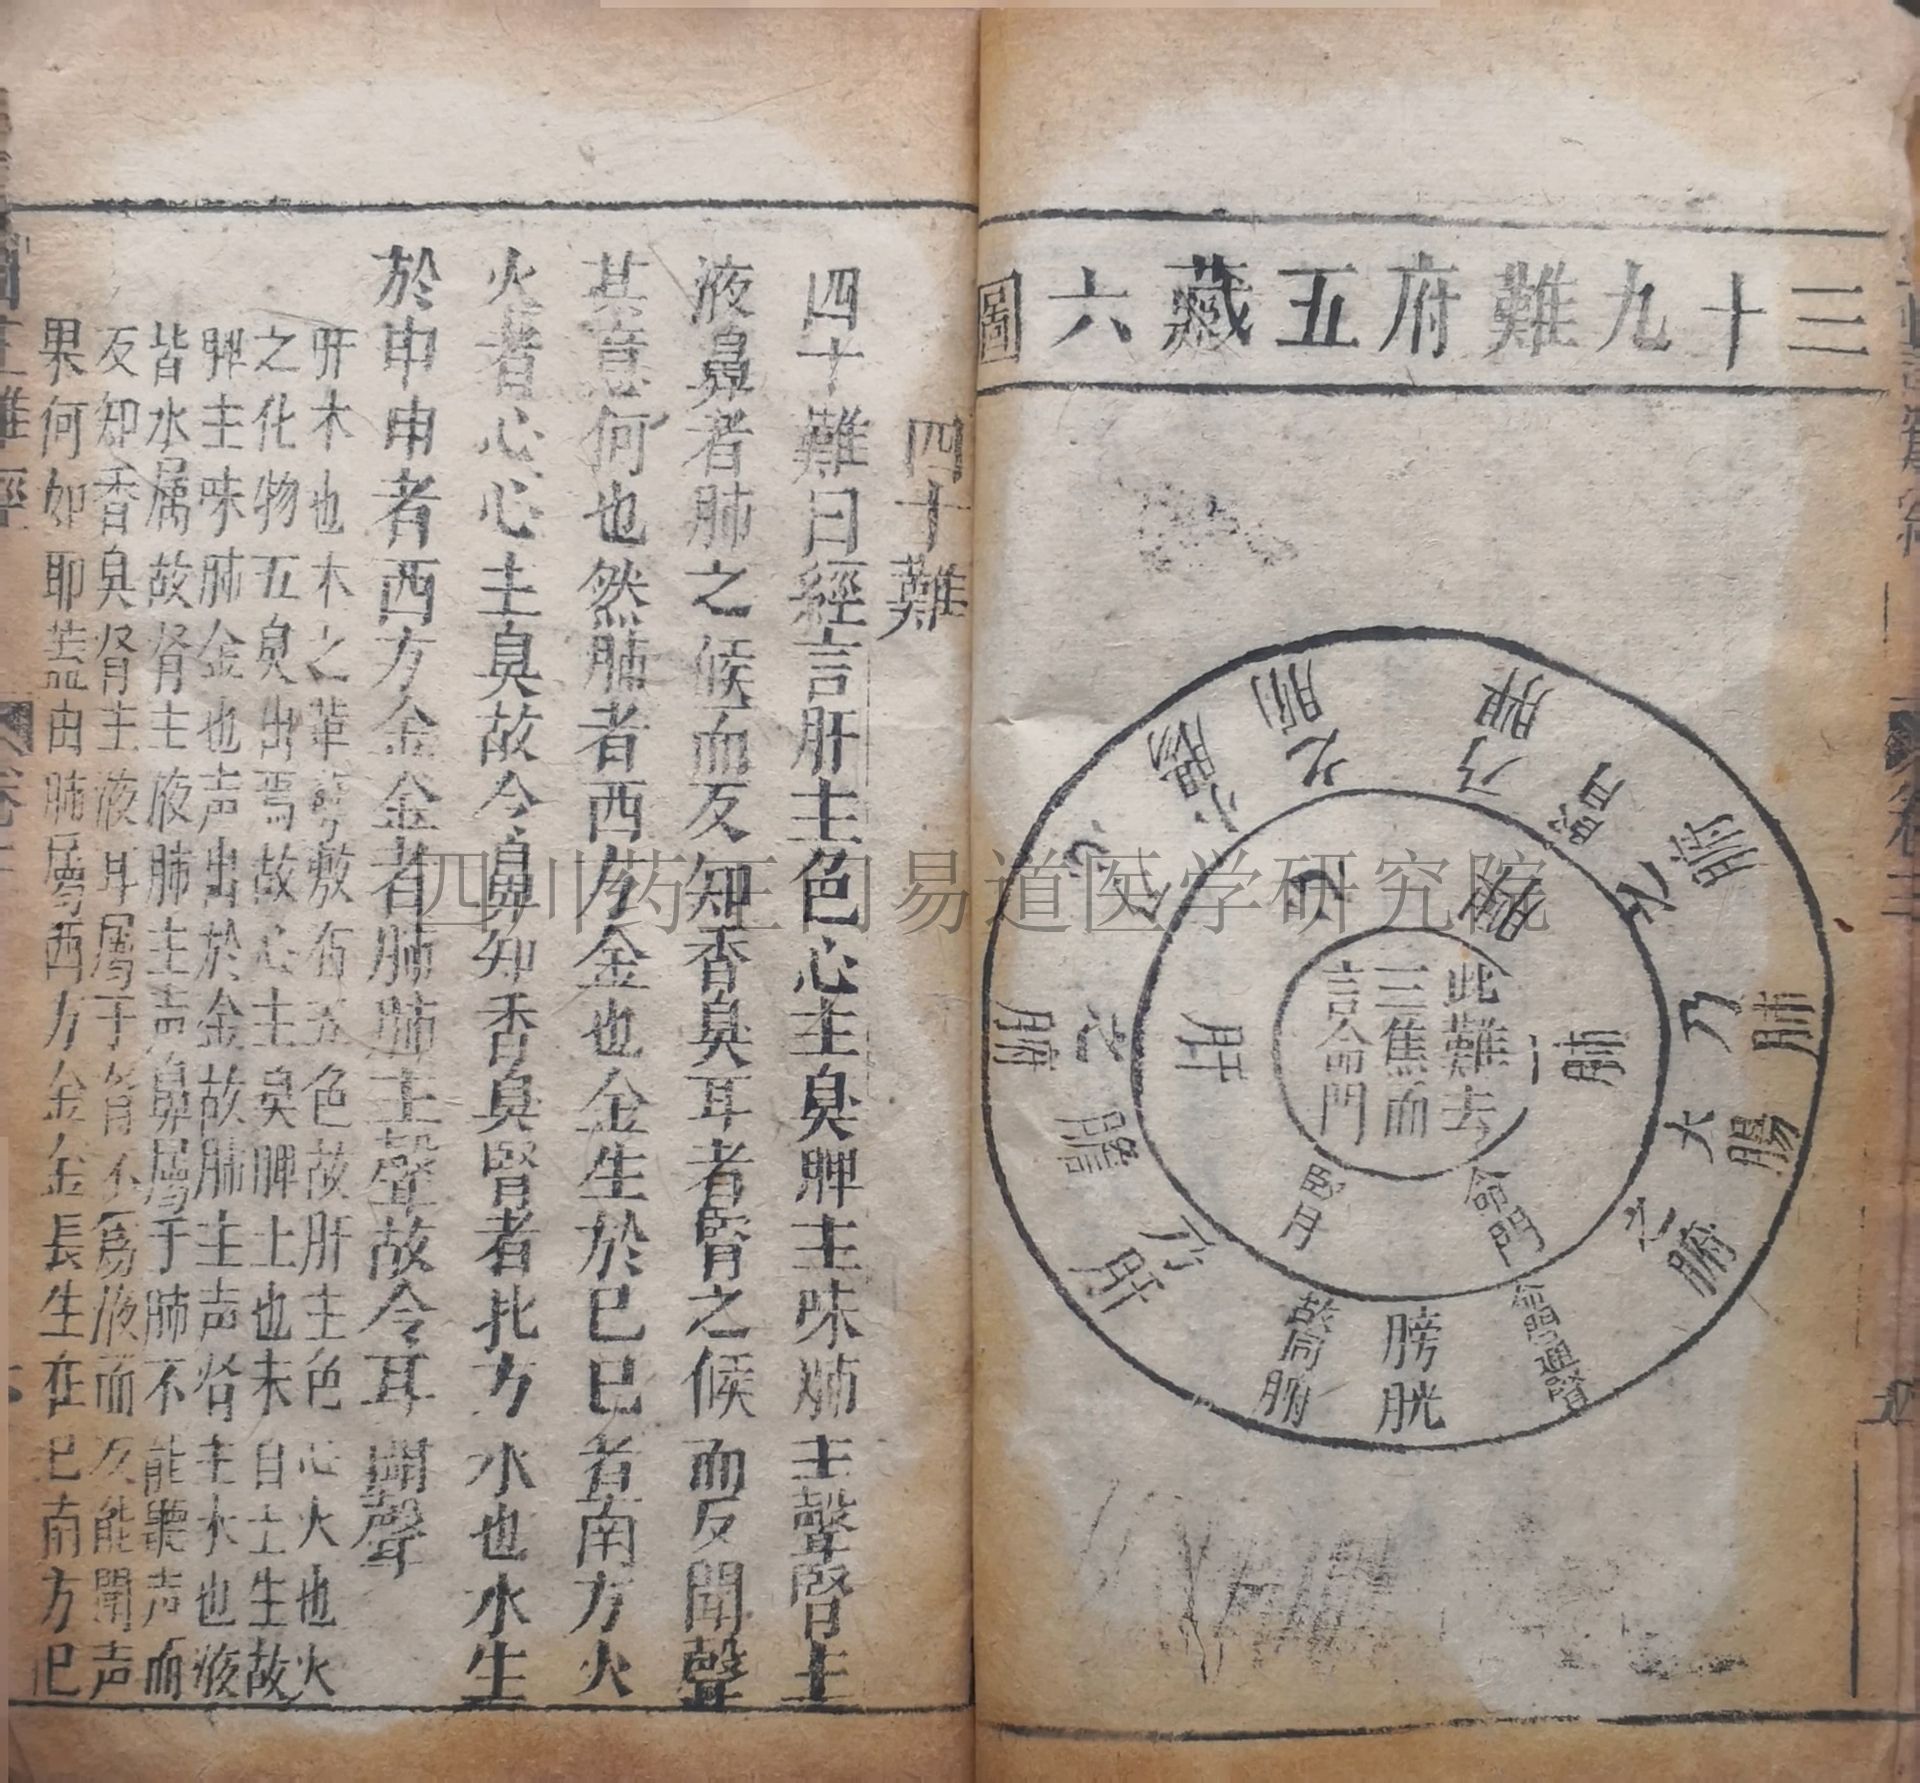 三十九難府五藏六圖
脾乃腎之腑
肺乃大腸之腑
命門通腎
膀胱
故同腑
肝乃膽之腑
心乃小腸之腑
脾
心
肝
肺
腎
命門
此難去
三焦而
言命門
四十難
四十難曰經言肝主色心主臭脾主味肺主聲腎主
液鼻者肺之候而反知香臭耳者腎之候而反聞聲
其意何也然肺者西方金也金生於巳巳者南方火
火者心心主臭故令鼻知香臭腎者北方水也水生
於申申者西方金金者肺肺主聲故令耳聞聲
肝木也木之華萼敷布五色故肝主色心火也火
之化物五臭出焉故心主臭脾土也味自土生故
脾主味肺金也声出於金故肺主声腎主水也液
皆水属故腎主液肺主声鼻屬于肺不能聽声而
反知香臭腎主液耳屬于腎不為液而反能聞声
果何如耶盖由肺屬西方金金長生在巳南方巳
四川药王门易道医学研究院